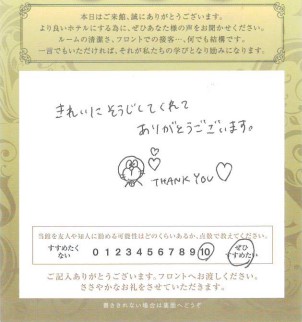 本日はご来館、誠にありがとうございます。
より良いホテルにする為に、ぜひあなた様の声をお聞かせください。
ルームの清潔さ、フロントでの接客…、何でも結構です。
一言でもいただければ、それが私たちの学びとなり励みになります。
きれいにそうじしてくれて
ありがとうございます。
THANK YOU
当館を友人や知人に勧める可能性はどのくらいあるか、点数で教えてください。
すすめたく
ない
0 1 2 3 4 5 6 7 8 9 10
ぜひ
すすめたい
ご記入ありがとうございます。フロントへお渡しください。
ささやかなお礼をさせていただきます。
書ききれない場合は裏面へどうぞ